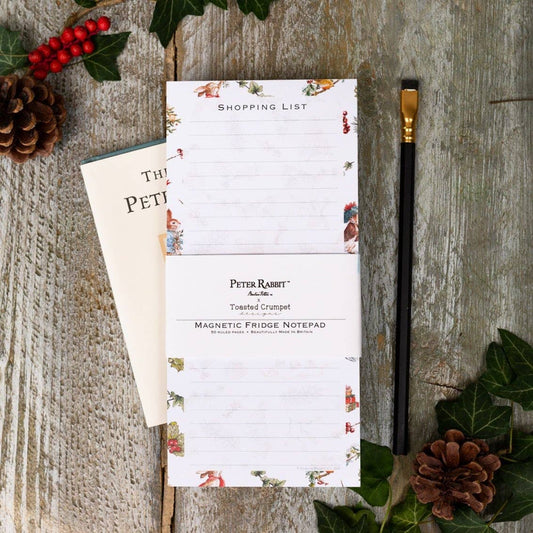 SHOPPING LIST
THE
PETE
PETER RABBIT™
Beatrix Potter ™
x
Toasted Crumpet
designs
MAGNETIC FRIDGE NOTEPAD
50 RULED PAGES • BEAUTIFULLY MADE IN BRITAIN